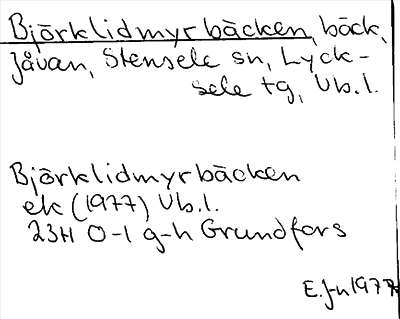 Björklidmyrbäcken, bäck,
Jåvan, Stensele sn, Lyck-
sele tg, Vb.l.
Björklidmyrbäcken
ek (1977) Vb.l.
23H 0-1 g-h Grundfors
E. J-n 1977